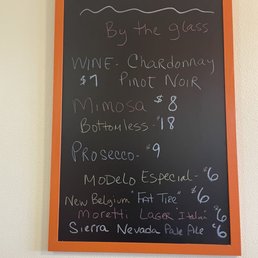 By the glass
WINE - Chardonnay
$7 PINOT NOIR
Mimosa $8
Bottomless - $18
Prosecco - $9
Modelo Especial - $6
New Belgium "Fat Tire" $6
Moretti Lager $6
Sierra Nevada Pale Ale $6